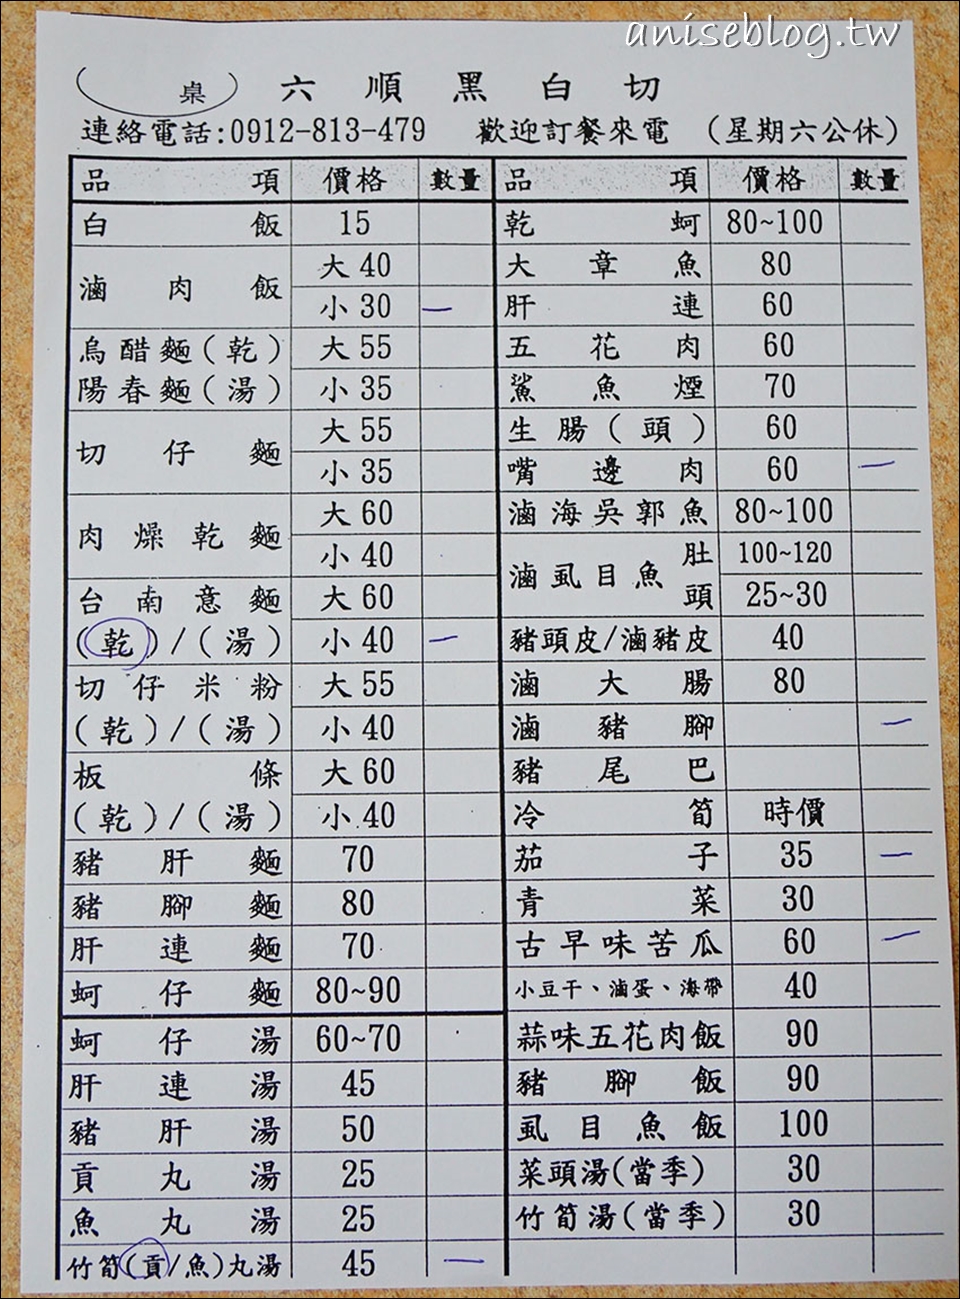 aniseblog.tw
( 桌 ) 六順黑白切
連絡電話:0912-813-479 歡迎訂餐來電 (星期六公休)
品項 價格 數量
白飯 15
滷肉飯 大40
小30 一
烏醋麵(乾) 大55
陽春麵(湯) 小35
切仔麵 大55
小35
肉燥乾麵 大60
小40
台南意麵 大60
(乾)/(湯) 小40 一
切仔米粉 大55
(乾)/(湯) 小40
板條 大60
(乾)/(湯) 小40
豬肝麵 70
豬腳麵 80
肝連麵 70
蚵仔麵 80~90
蚵仔湯 60~70
肝連湯 45
豬肝湯 50
貢丸湯 25
魚丸湯 25
竹筍(貢/魚)丸湯 45 一
品項 價格 數量
乾蚵 80~100
大章魚 80
肝連 60
五花肉 60
鯊魚煙 70
生腸(頭) 60
嘴邊肉 60 一
滷海吳郭魚 80~100
滷虱目魚 肚 100~120
頭 25~30
豬頭皮/滷豬皮 40
滷大腸 80
滷豬腳 一
豬尾巴
冷筍 時價
茄子 35 一
青菜 30
古早味苦瓜 60 一
小豆干、滷蛋、海帶 40
蒜味五花肉飯 90
豬腳飯 90
虱目魚飯 100
菜頭湯(當季) 30
竹筍湯(當季) 30